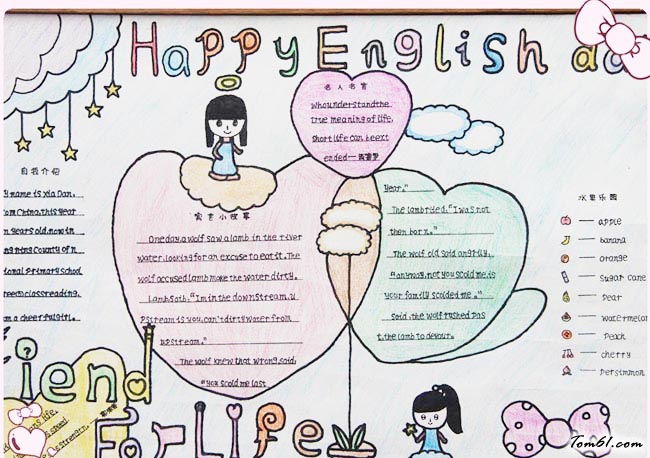 Happy English da
自我介绍
y name is Xia Dan.
om China.this year
n years old.now in
ng ning County of n
ional primary school
reem class reading.
am a cheerful girl.
名人名言
Who understand the
true meaning of life,
short life can be ext
ended—
寓言小故事
One day, a wolf saw a lamb in the river
water, looking for an excuse to eat it. The
wolf accused lamb make the water dirty.
Lamb said: "I'm in the downstream, u
pstream is you, can't dirty water from
upstream."
The wolf knew that wrong, said:
"you scold me last
year."
The lamb cried: "I was not
then born."
The wolf old said angrily,
"anyway, not you scold me is
your family scolded me."
Said, the wolf rushed pas
t, the lamb to devour.
水果乐园
apple
banana
orange
sugar cane
pear
watermelon
peach
cherry
persimmon
iend
For Life
Tom61.com